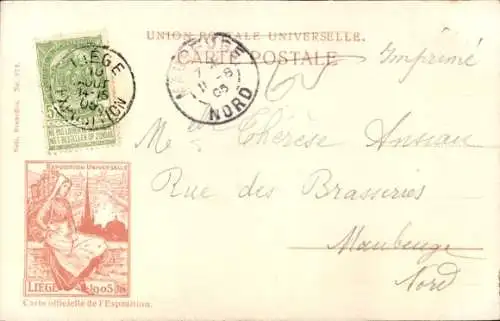 UNION POSTALE UNIVERSELLE.
CARTE POSTALE
Imprimé
LIÉGE
10
AOUT
14-15
05
MAUBEUGE
11-8
05
NORD
NE PAS LIVRER LE DIMANCHE
NIET BESTELLEN OP ZONDAG
Mle Thérèse Ansiau
Rue des Brasseries
Maubeuge
Nord
EXPOSITION UNIVERSELLE
LIÉGE 1905
Carte officielle de l'Exposition.
Nels, Bruxelles,